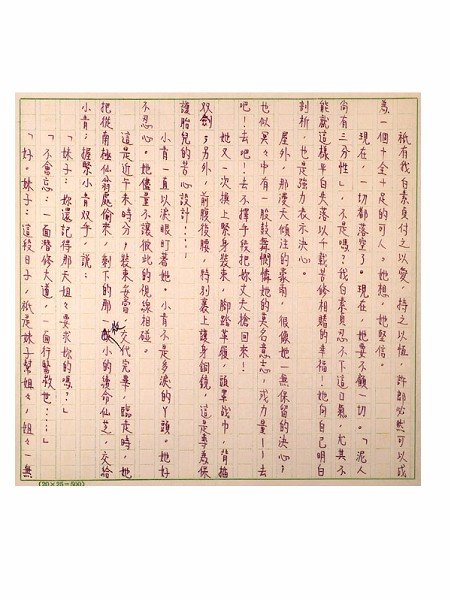 祇有我白素貞付之以愛，持之以恆，許郎必然可以成
為一個十全十足的可人。她想，她堅信。
現在，一切都落空了。現在，她要不顧一切。「泥人
尚有三分性」，不是嗎？我白素貞忍不下這口氣，尤其不
能就這樣平白失落以千載苦修相賭的幸福！她向自己明白
剖析，也是強力表示決心。
屋外，那漫天傾注的豪雨，很像她一無保留的決心；
也似冥冥中有一股鼓舞憫憐她的莫名意志，或力量——去
吧！去吧！去不擇手段把妳丈夫搶回來！
她又一次換上緊身裝束，腳踏草履，頭罩戰巾，背插
双劍；另外，前腹後腰，特別裹上護身銅鏡，這是專為保
護胎兒的苦心設計……
小青一直以淚眼盯著她。小青不是多淚的丫頭。她好
不忍心。她儘量不讓彼此的視線相碰。
這是近午未時分，裝束妥當，交代完畢，臨走時，她
把從南極仙翁處偷來，剩下的那一截小的續命仙芝，交給
小青；握緊小青双手，說：
「妹子：妳還記得那天姐姐要求妳的嗎？」
「不會忘：一面潛修大道，一面行醫救世……」
「好。妹子：這段日子，祇是妹子幫姐姐，姐姐一無
(20×25=500)